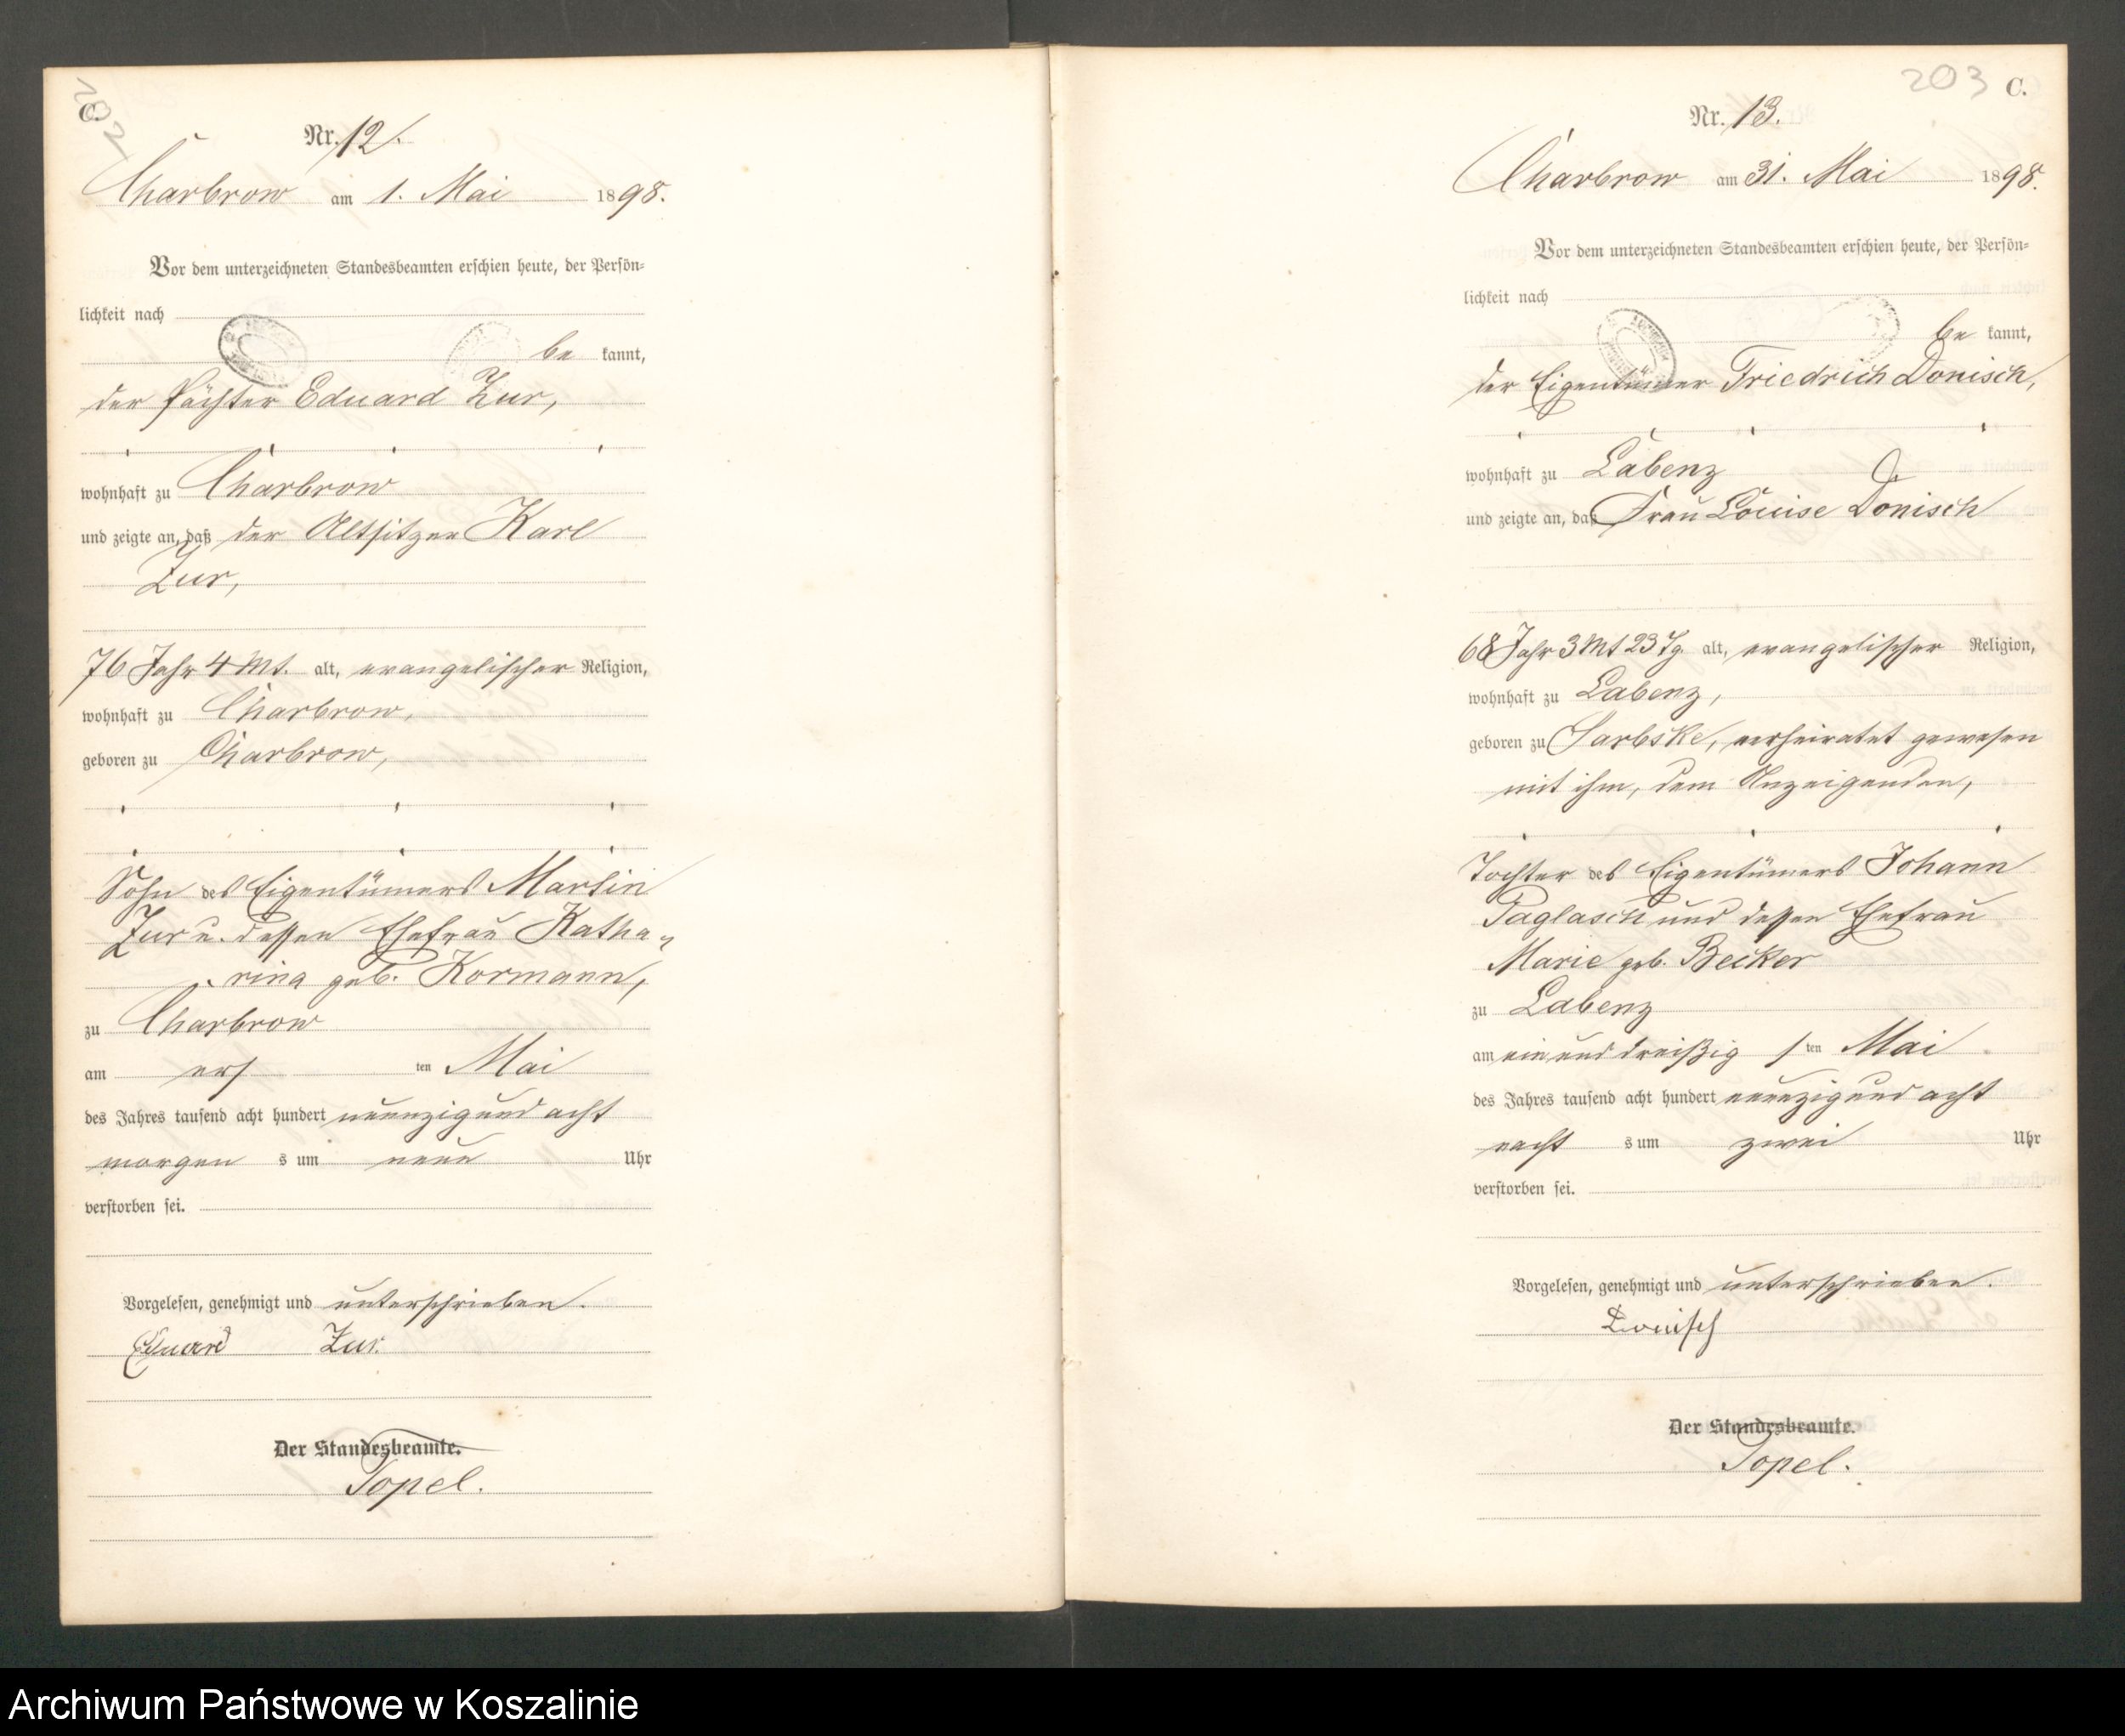 202
C.
Nr. 12.
Charbrow am 1. Mai 1898.
Vor dem unterzeichneten Standesbeamten erschien heute, der Persön-
lichkeit nach
be kannt,
der Pächter Eduard Zur,
wohnhaft zu Charbrow
und zeigte an, daß der Altsitzer Karl
Zur,
76 Jahr 4 Mt. alt, evangelischer Religion,
wohnhaft zu Charbrow,
geboren zu Charbrow,
Sohn des Eigentümers Martin
Zur u. dessen Ehefrau Katha-
rina geb. Kormann,
zu Charbrow
am ers ten Mai
des Jahres tausend acht hundert neunzig und acht
morgen s um neun Uhr
verstorben sei.
Vorgelesen, genehmigt und unterschrieben.
Eduard Zur.
Der Standesbeamte.
Topel.
203 C.
Nr. 13.
Charbrow am 31. Mai 1898.
Vor dem unterzeichneten Standesbeamten erschien heute, der Persön-
lichkeit nach
be kannt,
der Eigentümer Friedrich Donisch,
wohnhaft zu Labenz
und zeigte an, daß Frau Louise Donisch
68 Jahr 3 Mt 23 Tg. alt, evangelischer Religion,
wohnhaft zu Labenz,
geboren zu Sarbske, verheiratet gewesen
mit ihm, dem Anzeigenden,
Tochter des Eigentümers Johann
Paglasch und dessen Ehefrau
Marie geb. Becker
zu Labenz
am ein und dreißig s ten Mai
des Jahres tausend acht hundert neunzig und acht
nacht s um zwei Uhr
verstorben sei.
Vorgelesen, genehmigt und unterschrieben.
Donisch
Der Standesbeamte.
Topel.
Archiwum Państwowe w Koszalinie